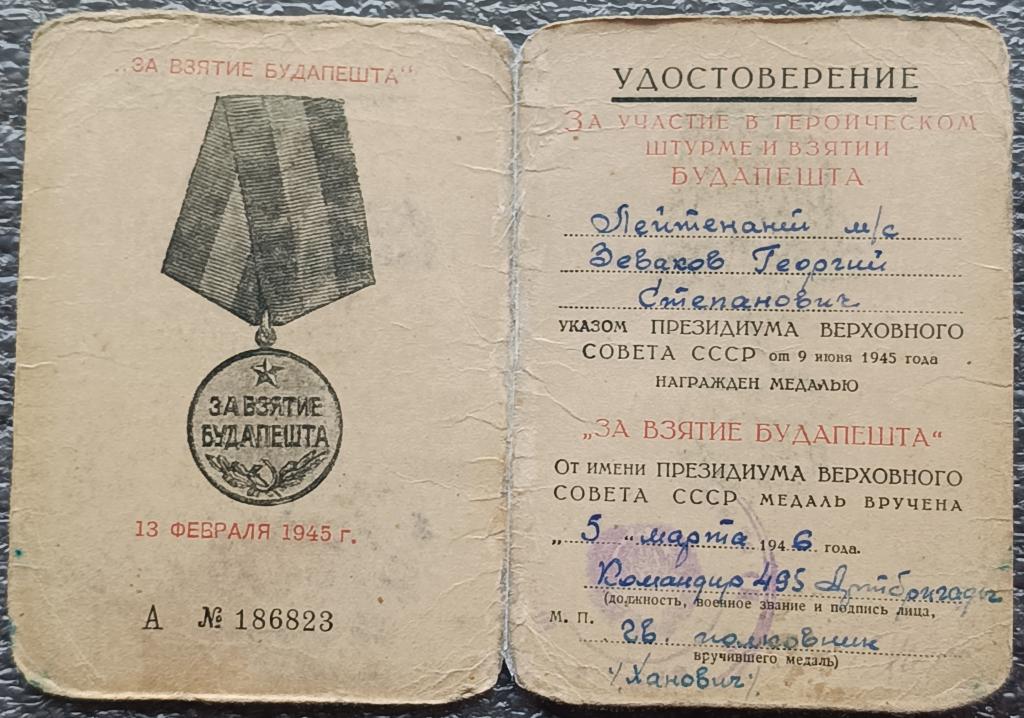 „ЗА ВЗЯТИЕ БУДАПЕШТА“
ЗА ВЗЯТИЕ
БУДАПЕШТА
13 ФЕВРАЛЯ 1945 г.
А № 186823
УДОСТОВЕРЕНИЕ
ЗА УЧАСТИЕ В ГЕРОИЧЕСКОМ
ШТУРМЕ И ВЗЯТИИ
БУДАПЕШТА
Лейтенант м/с
Зеваков Георгий
Степанович
УКАЗОМ ПРЕЗИДИУМА ВЕРХОВНОГО
СОВЕТА СССР от 9 июня 1945 года
НАГРАЖДЕН МЕДАЛЬЮ
„ЗА ВЗЯТИЕ БУДАПЕШТА“
От имени ПРЕЗИДИУМА ВЕРХОВНОГО
СОВЕТА СССР МЕДАЛЬ ВРУЧЕНА
„5“ марта 1946 года.
Командир 495 Артбригады
(должность, военное звание и подпись лица,
М. П.
гв. полковник
вручившего медаль)
/Ханович/